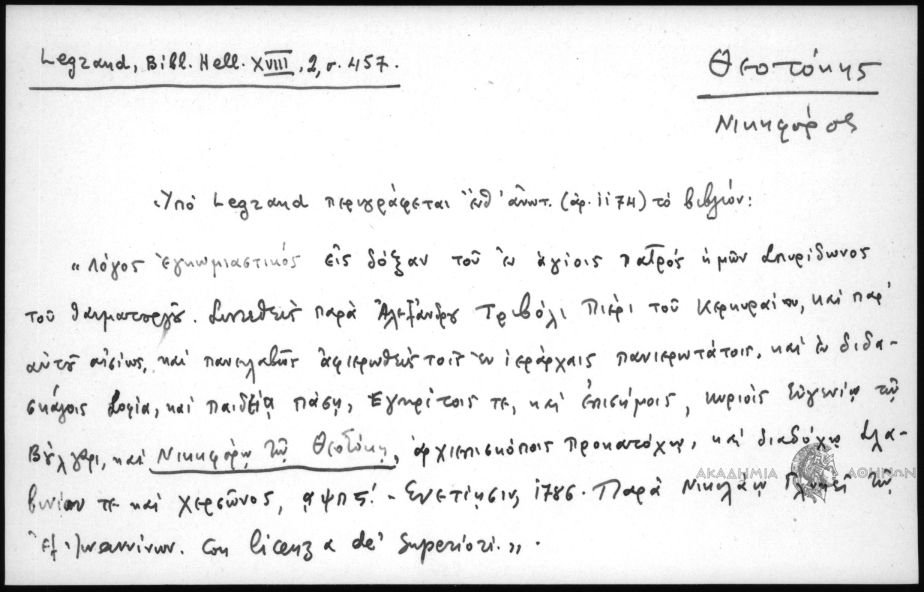 Legrand, Bibl. Hell. XVIII, 2, σ. 457.
Θεοτόκης
Νικηφόρος
Ὑπὸ Legrand περιγράφεται ἔνθ' ἀνωτ. (ἀρ. 1174) τὸ βιβλίον:
"Λόγος ἐγκωμιαστικός εἰς δόξαν τοῦ ἐν ἁγίοις πατρός ἡμῶν Σπυρίδωνος
τοῦ θαυματουργοῦ. Συντεθεὶς παρὰ Ἀλεξάνδρου Τριβόλι Πιέρι τοῦ Κερκυραίου, καὶ παρ'
αὐτοῦ αἰσίως, καὶ πανευλαβῶς ἀφιερωθεὶς τοῖς ἐν ἱεράρχαις πανιερωτάτοις, καὶ ἐν διδα-
σκάλοις Σοφίᾳ, καὶ παιδείᾳ πάσῃ, ἐγκρίτοις τε, καὶ ἐπισήμοις, κυρίοις Εὐγενίῳ τῷ
Βουλγάρι, καὶ Νικηφόρῳ τῷ Θεοτόκῃ, ἀρχιεπισκόποις προκατόχῳ, καὶ διαδόχῳ Σλα-
βινίου τε καὶ Χερσῶνος, αψπς'. - Ἐνετίησιν, 1786. Παρὰ Νικολάῳ Γλυκεῖ τῷ
ἐξ Ἰωαννίνων. Con licenza de' Superiori.".
ΑΚΑΔΗΜΙΑ ΑΘΗΝΩΝ